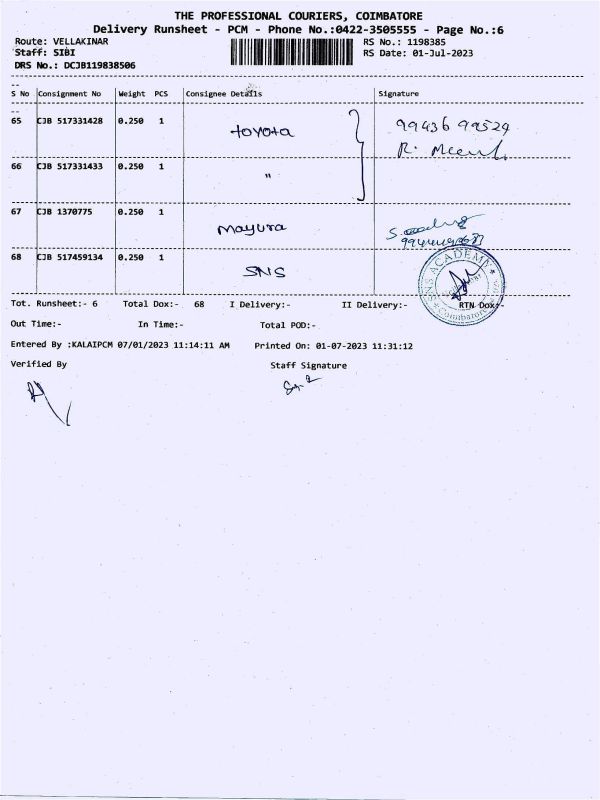 THE PROFESSIONAL COURIERS, COIMBATORE
Delivery Runsheet - PCM - Phone No.:0422-3505555 - Page No.:6
Route: VELLAKINAR RS No.: 1198385
Staff: SIBI RS Date: 01-Jul-2023
DRS No.: DCJB119838506
S No Consignment No Weight PCS Consignee Details Signature
65 CJB 517331428 0.250 1 toyota 99436 99529
R.
66 CJB 517331433 0.250 1 "
67 CJB 1370775 0.250 1 mayura
68 CJB 517459134 0.250 1 SNS
SNS ACADEMY
Coimbatore
Tot. Runsheet:- 6 Total Dox:- 68 I Delivery:- II Delivery:- RTN Dox:-
Out Time:- In Time:- Total POD:-
Entered By :KALAIPCM 07/01/2023 11:14:11 AM Printed On: 01-07-2023 11:31:12
Verified By Staff Signature